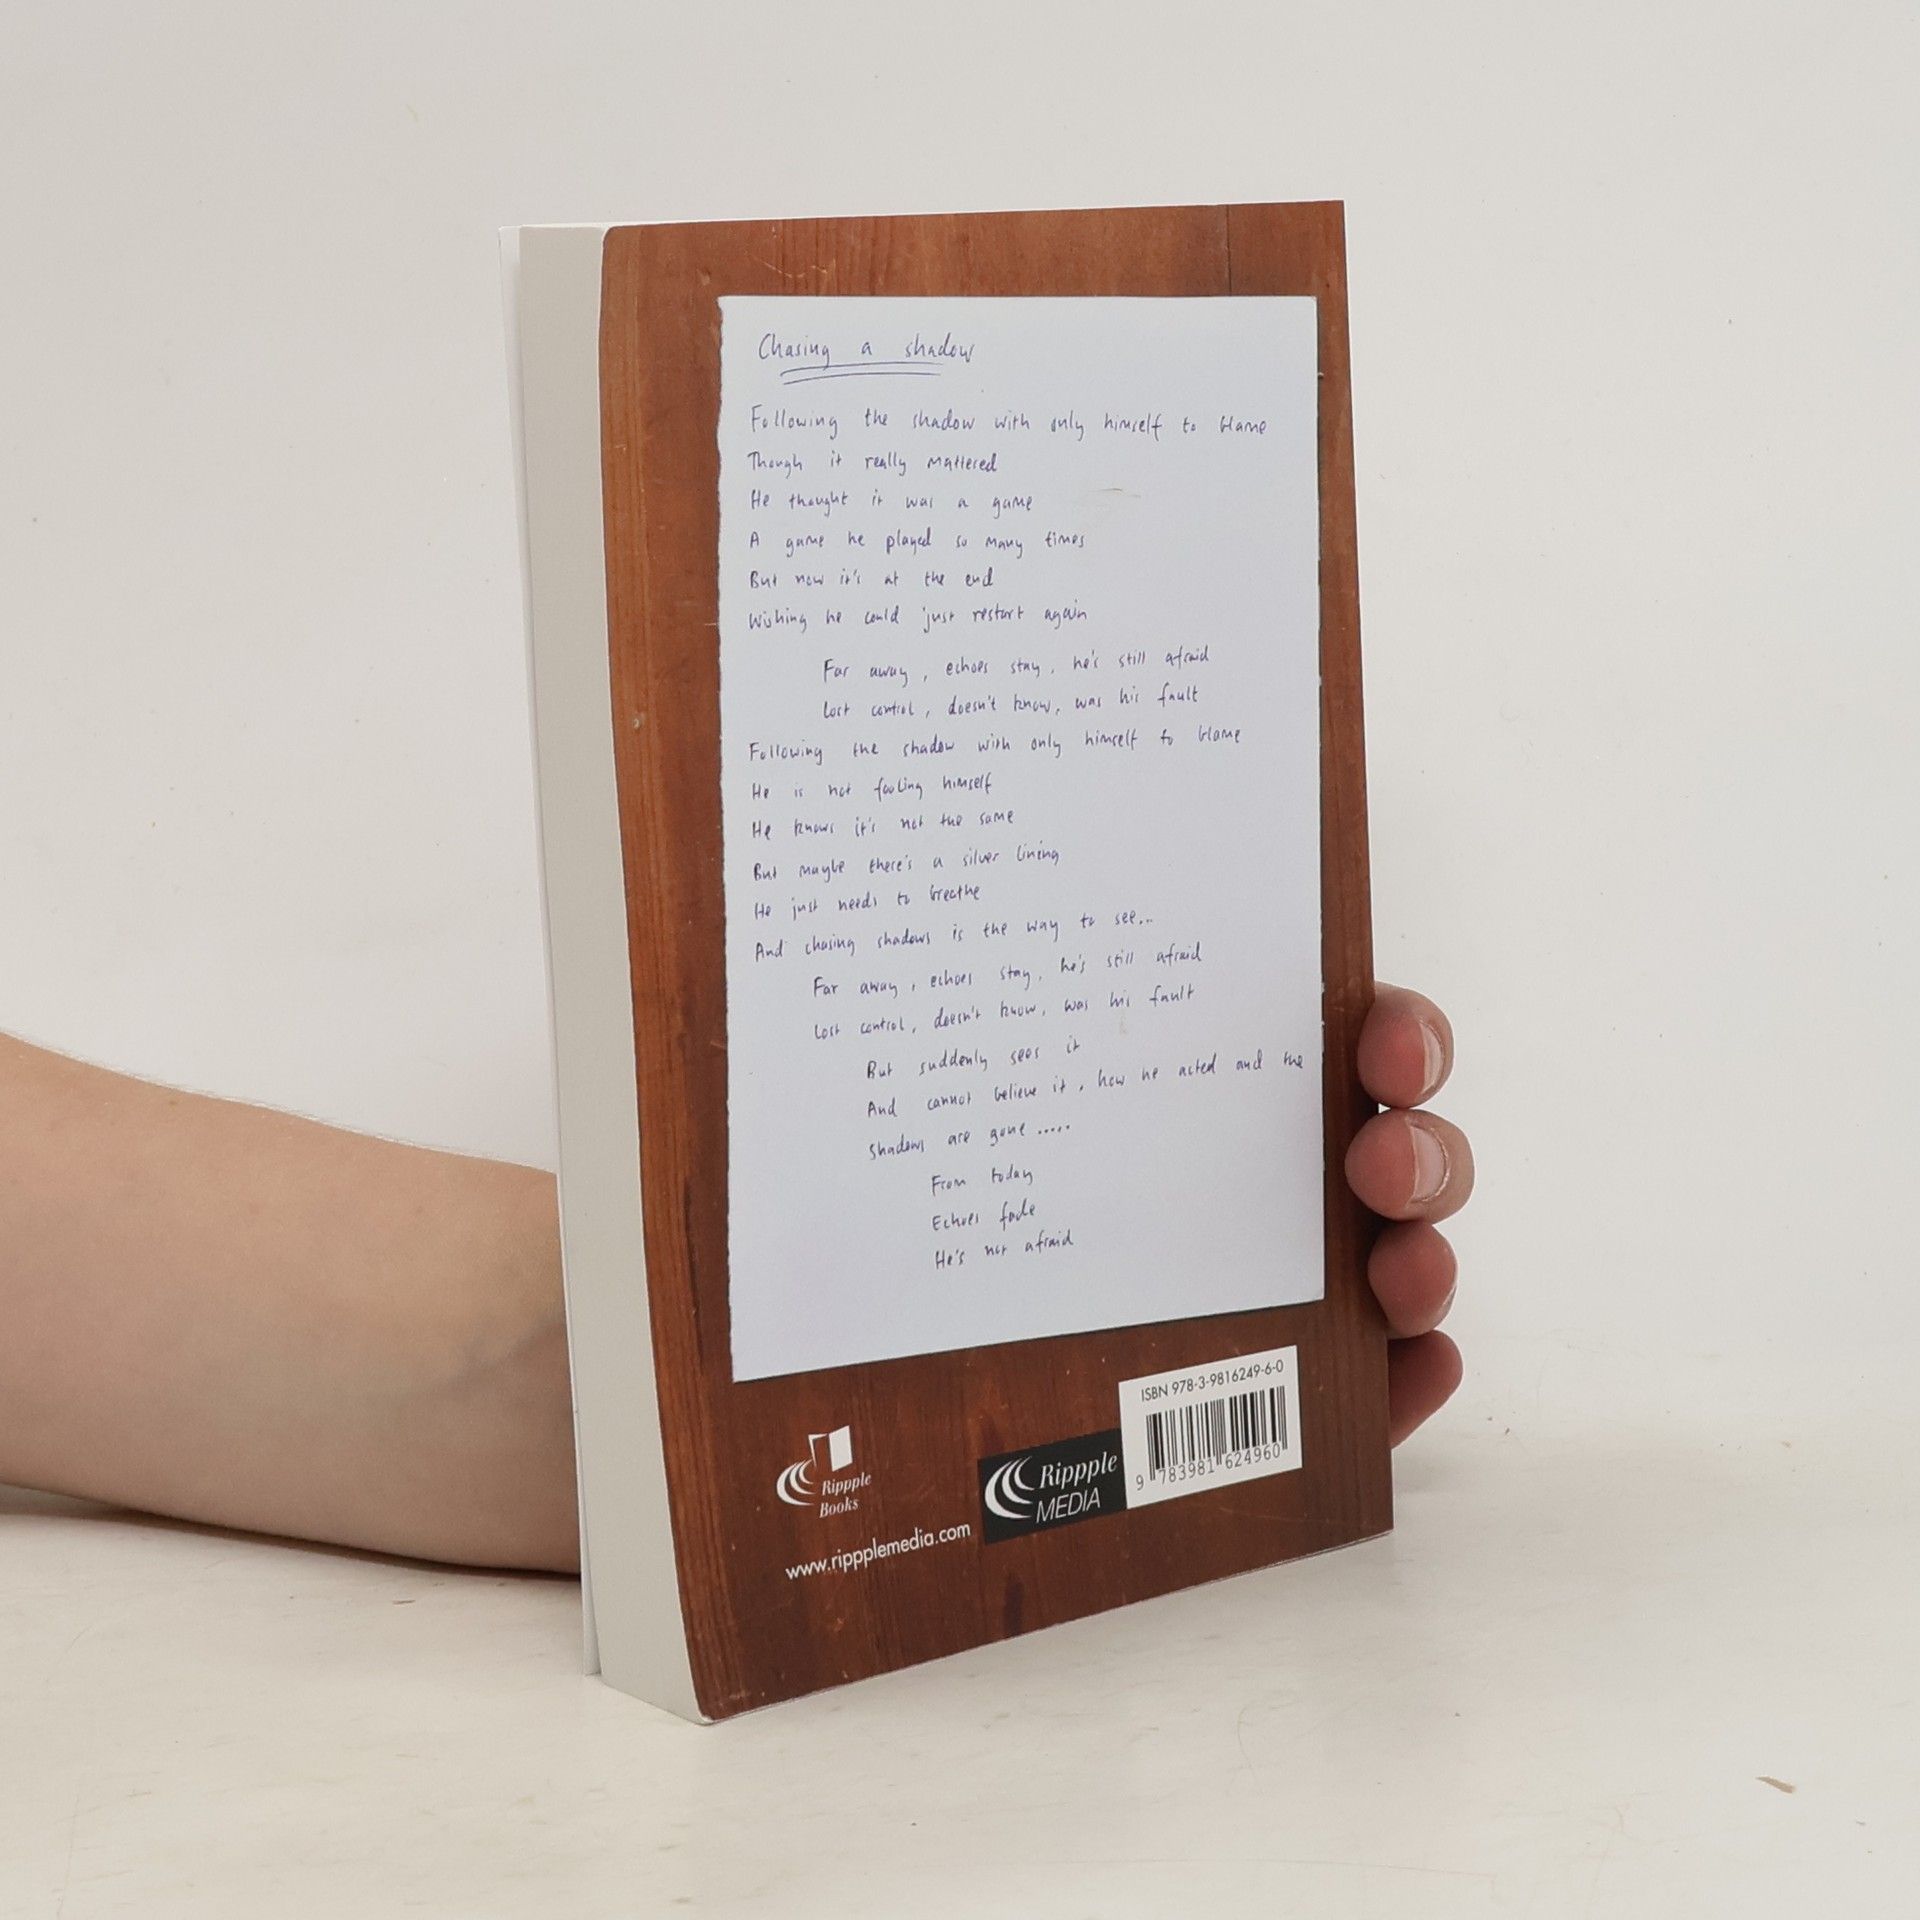 Chasing a shadow
Following the shadow with only himself to blame
Though it really mattered
He thought it was a game
A game he played so many times
But now it's at the end
Wishing he could just restart again
Far away, echoes stay, he's still afraid
Lost control, doesn't know, was his fault
Following the shadow with only himself to blame
He is not fooling himself
He knows it's not the same
But maybe there's a silver lining
He just needs to breathe
And chasing shadows is the way to see...
Far away, echoes stay, he's still afraid
Lost control, doesn't know, was his fault
But suddenly sees it
And cannot believe it, how he acted and the
shadows are gone .....
From today
Echoes fade
He's not afraid
ISBN 978-3-9816249-6-0
9 783981 624960
Rippple
Books
Rippple
MEDIA
www.rippplemedia.com